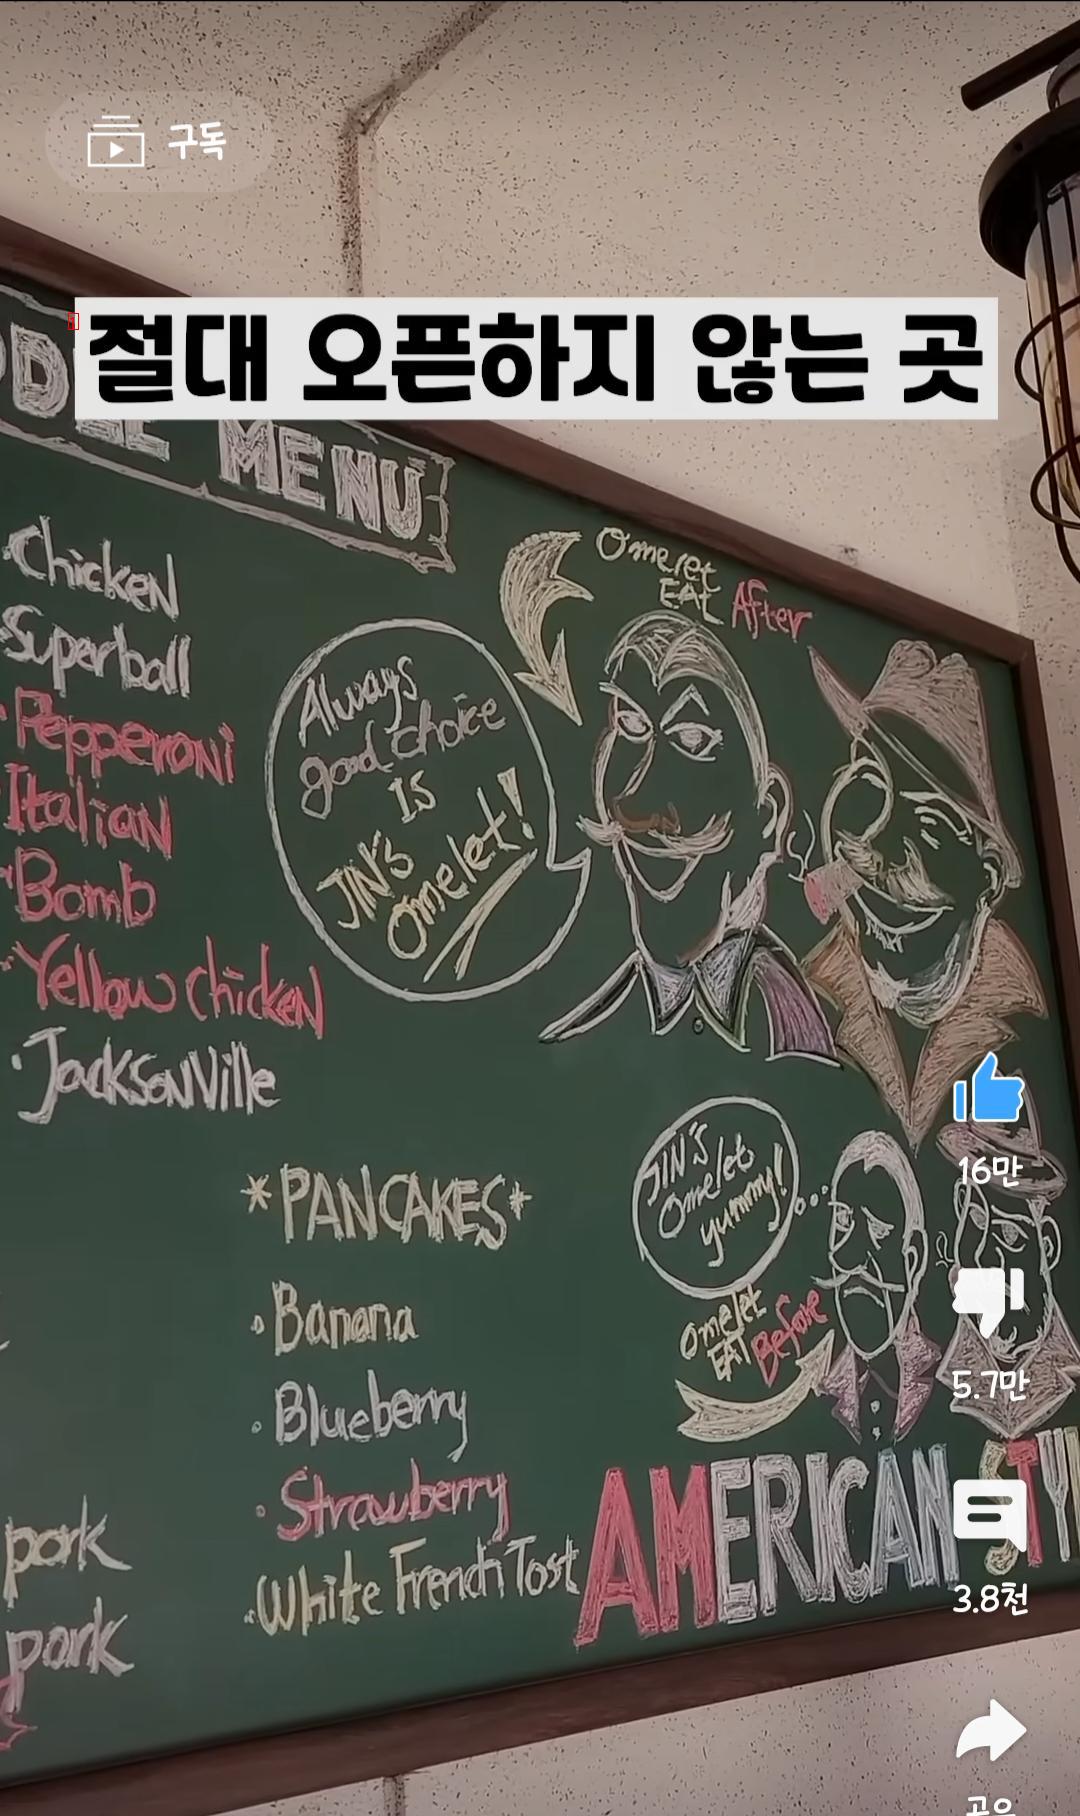 구독
절대 오픈하지 않는 곳
MENU
Chicken
Superball
Pepperoni
Italian
Bomb
Yellow chicken
Jacksonville
Omelet
EAT After
Always
good choice
IS
JIN'S
omelet!
*PANCAKES*
Banana
Blueberry
Strawberry
White French Tost
JIN'S
Omelet
yummy!
omelet
EAT Before
AMERICAN STY
pork
pork
16만
5.7만
3.8천
공유